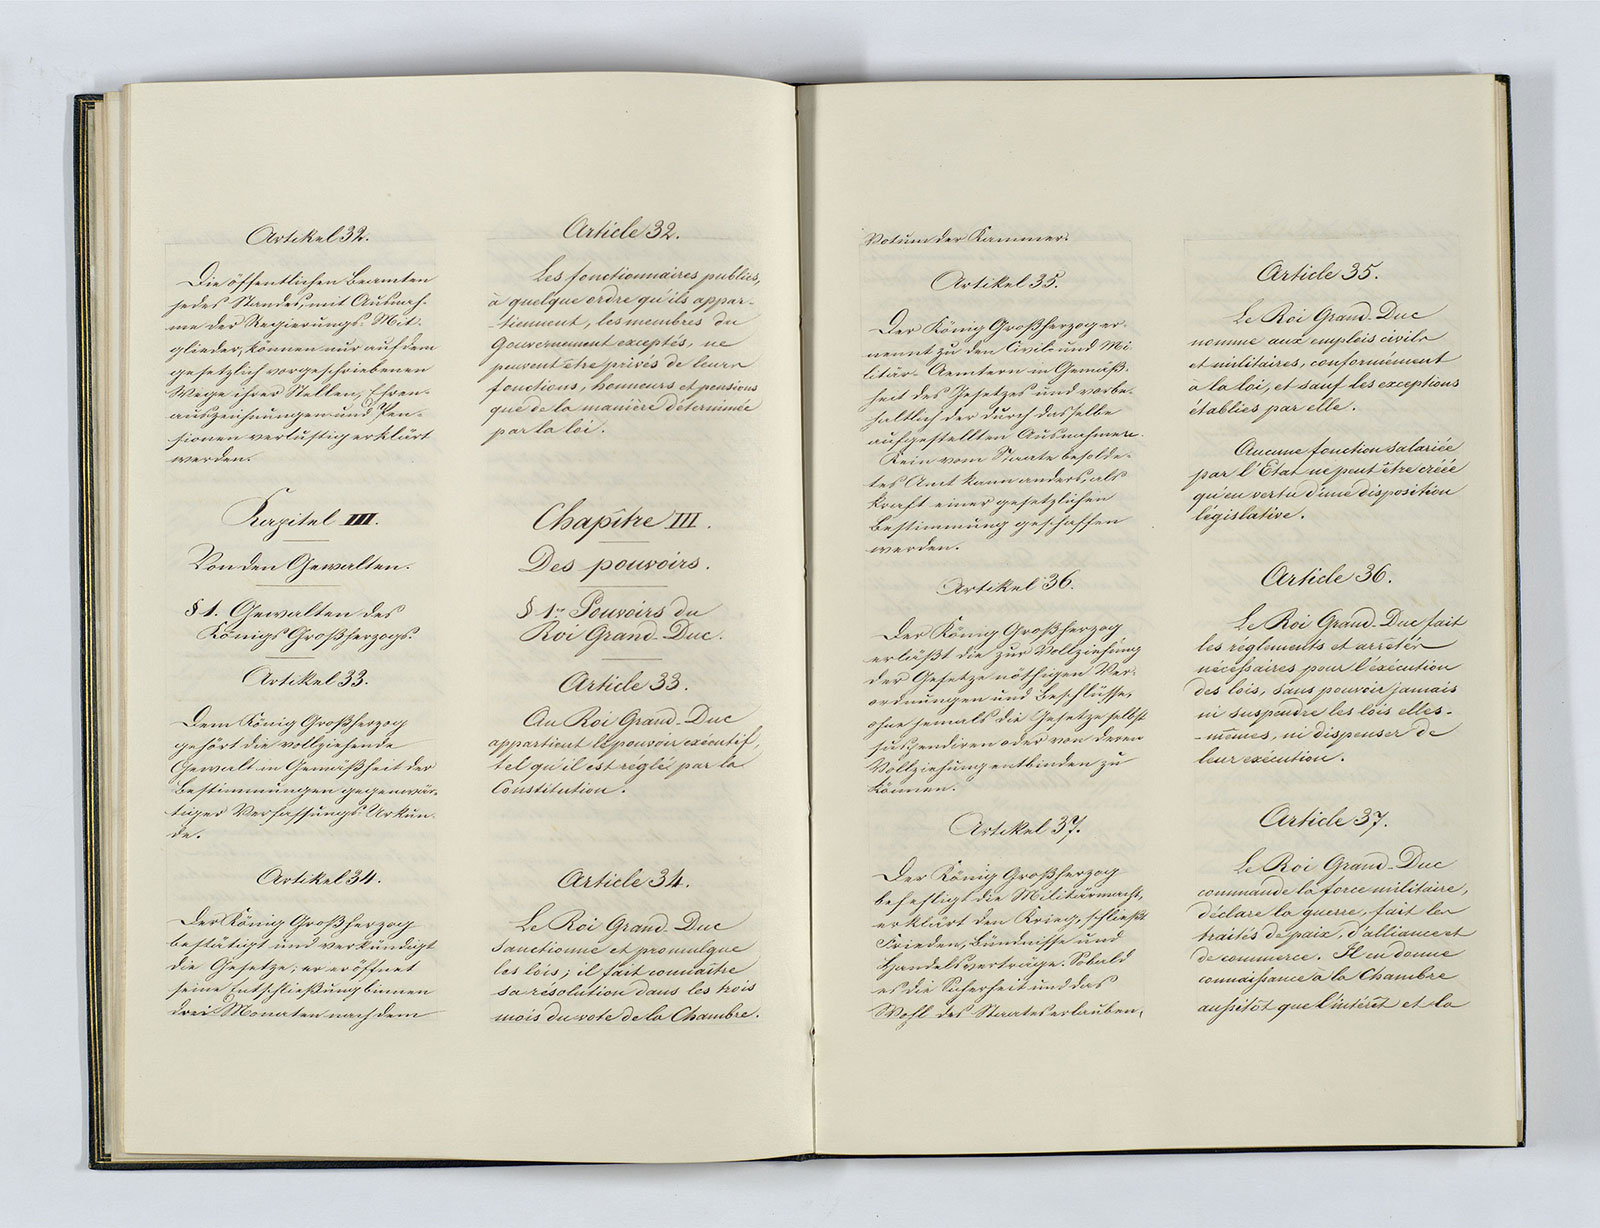 Artikel 32.
Die öffentlichen Beamten
jedes Standes, mit Ausnah-
me der Regierungs-Mit-
glieder, können nur auf dem
gesetzlich vorgeschriebenen
Wege ihrer Stellen, Ehren-
auszeichnungen und Pen-
sionen verlustig erklärt
werden.
Kapitel III.
Von den Gewalten.
§ 1. Gewalten des
Königs Großherzogs.
Artikel 33.
Dem König Großherzog
gehört die vollziehende
Gewalt in Gemäßheit der
Bestimmungen gegenwär-
tiger Verfassungs-Urkun-
de.
Artikel 34.
Der König Großherzog
bestätigt und verkündigt
die Gesetze; er eröffnet
seine Entschließung binnen
drei Monaten nach dem
Article 32.
Les fonctionnaires publics,
à quelque ordre qu'ils appar-
-tiennent, les membres du
Gouvernement exceptés, ne
peuvent être privés de leurs
fonctions, honneurs et pensions
que de la manière déterminée
par la loi.
Chapitre III.
Des pouvoirs.
§ 1er Pouvoirs du
Roi Grand-Duc.
Article 33.
Au Roi Grand-Duc
appartient le pouvoir exécutif,
tel qu'il est réglé par la
Constitution.
Article 34.
Le Roi Grand-Duc
sanctionne et promulgue
les lois; il fait connaître
sa résolution dans les trois
mois du vote de la Chambre.
Votum der Kammer.
Artikel 35.
Der König Großherzog er-
nennt zu den Civil- und Mi-
litär-Aemtern in Gemäß-
heit des Gesetzes und vorbe-
haltlich der durch dasselbe
aufgestellten Ausnahmen.
Kein vom Staate besolde-
tes Amt kann anders, als
kraft einer gesetzlichen
Bestimmung geschaffen
werden.
Artikel 36.
Der König Großherzog
erläßt die zur Vollziehung
der Gesetze nöthigen Ver-
ordnungen und Beschlüsse,
ohne jemals die Gesetze selbst
suspendiren oder von deren
Vollziehung entbinden zu
können.
Artikel 37.
Der König Großherzog
befehligt die Militärmacht,
erklärt den Krieg, schließt
Frieden, Bündnisse und
Handelsverträge. Sobald
es die Sicherheit und das
Wohl des Staates erlauben,
Article 35.
Le Roi Grand-Duc
nomme aux emplois civils
et militaires, conformément
à la loi, et sauf les exceptions
établies par elle.
Aucune fonction salariée
par l'État ne peut être créée
qu'en vertu d'une disposition
législative.
Article 36.
Le Roi Grand-Duc fait
les règlements et arrêtés
nécessaires pour l'exécution
des lois, sans pouvoir jamais
ni suspendre les lois elles-
-mêmes, ni dispenser de
leur exécution.
Article 37.
Le Roi Grand-Duc
commande la force militaire,
déclare la guerre, fait les
traités de paix, d'alliance et
de commerce. Il en donne
connaissance à la Chambre
aussitôt que l'intérêt et la